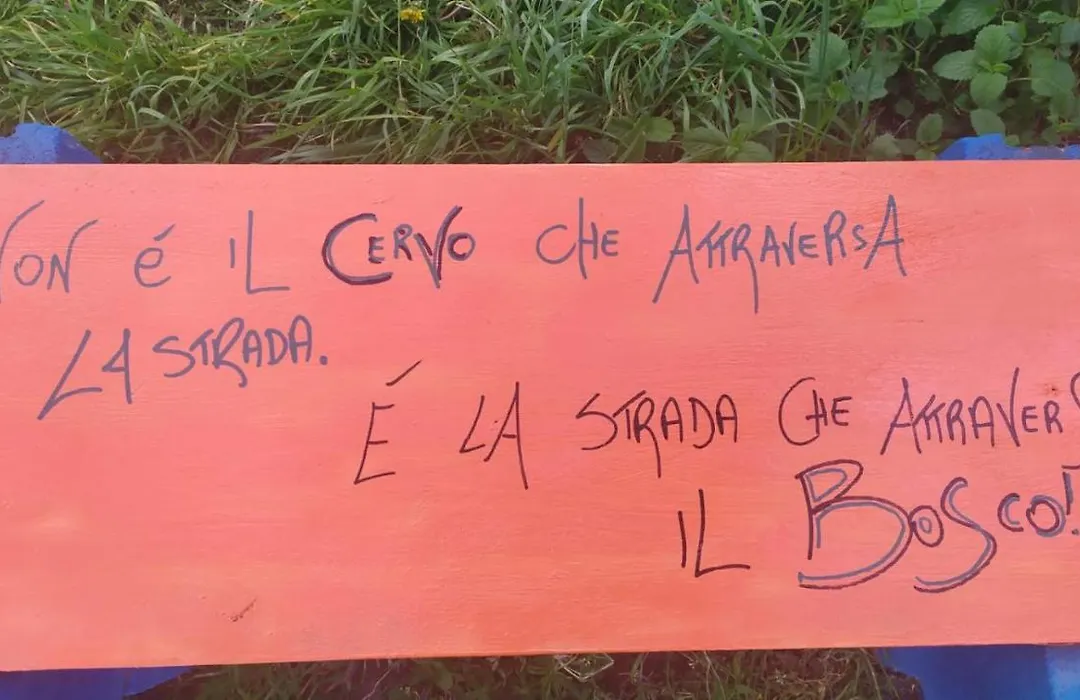 NON é IL CERVO CHE ATTRAVERSA
LA STRADA.
É LA STRADA CHE ATTRAVERS
IL BOSCO!